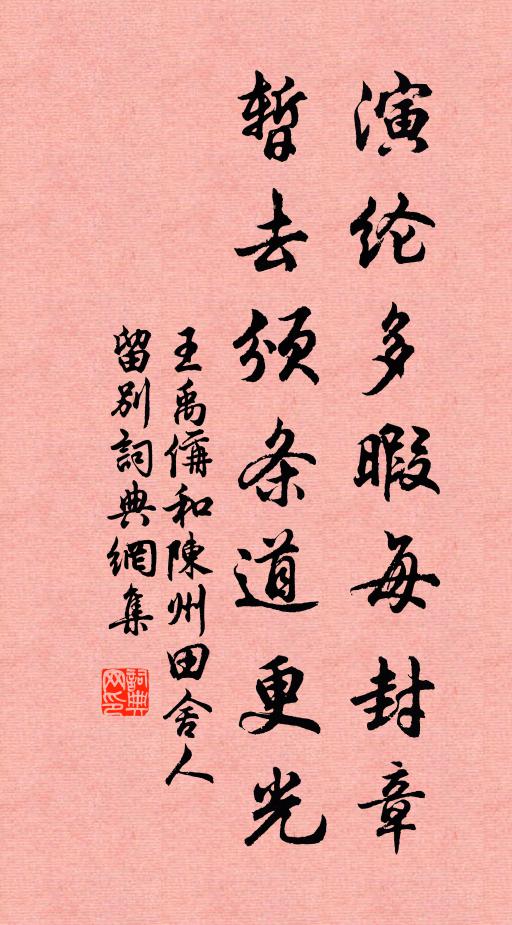 演纶多暇每封章
暂去颁条道更光
王禹偁和陳州田舍人
留別詞典網集
詞典
网印